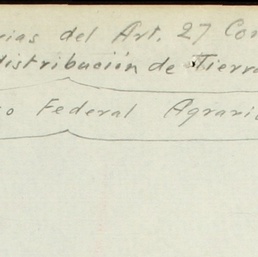 rias del Art. 27 Con
distribución de Tierra
o Federal Agrari